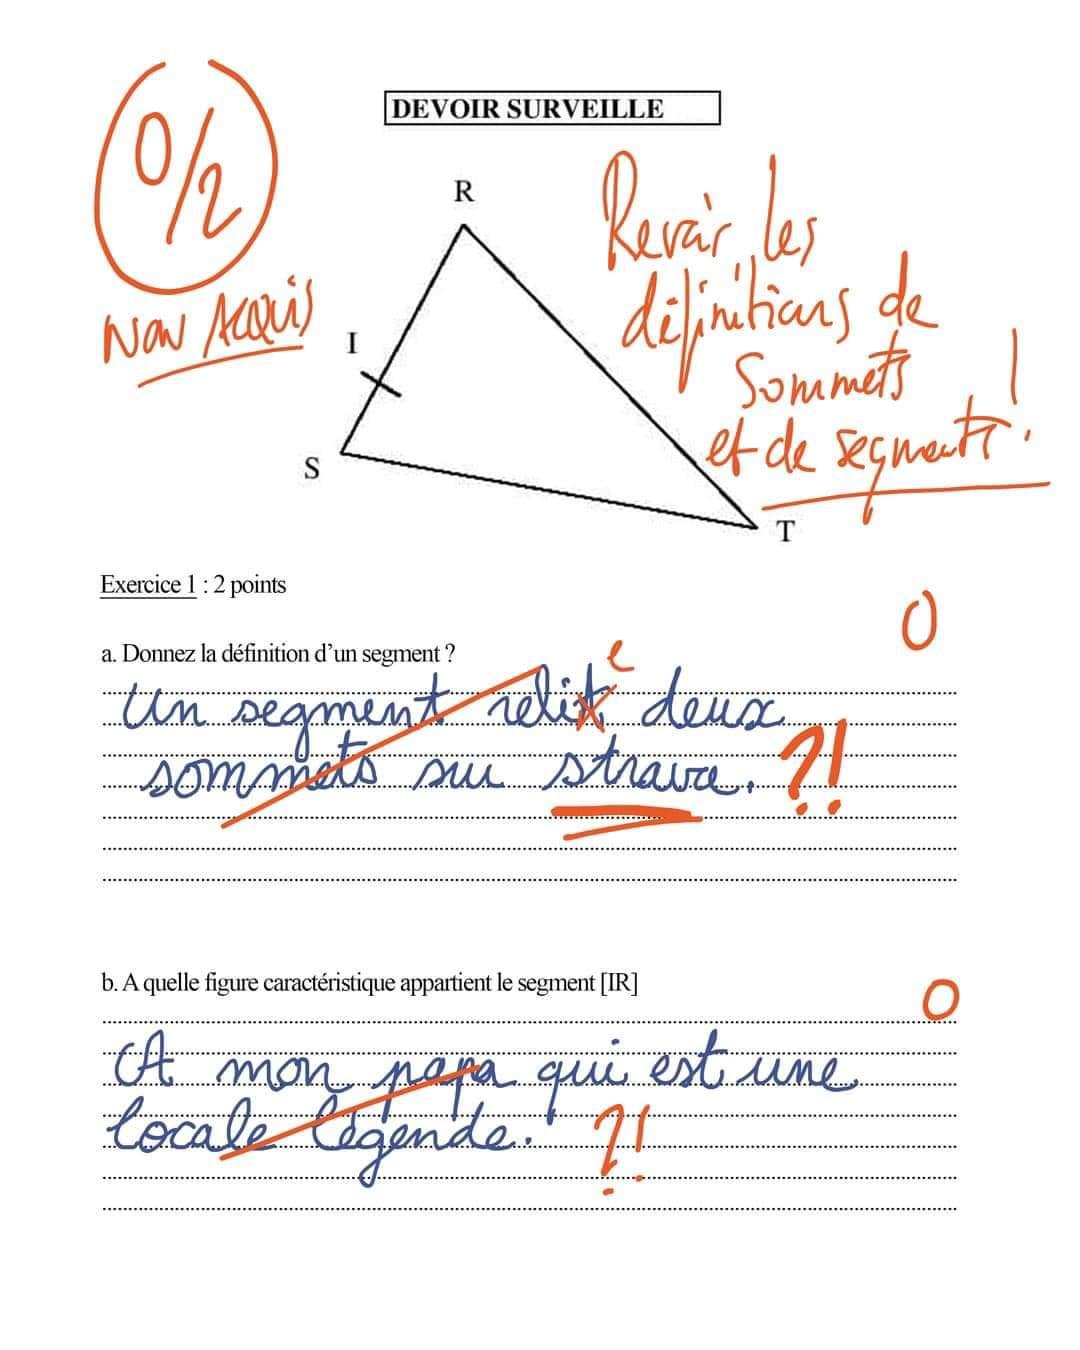 DEVOIR SURVEILLE
0/2
NON ACQUIS
Revoir les
définitions de
Sommets
et de segments !
R
I
S
T
Exercice 1 : 2 points
0
a. Donnez la définition d’un segment ?
e
Un segment relit deux
sommets sur strava. ?!
b. A quelle figure caractéristique appartient le segment [IR]
0
A mon papa qui est une
locale légende. ?!